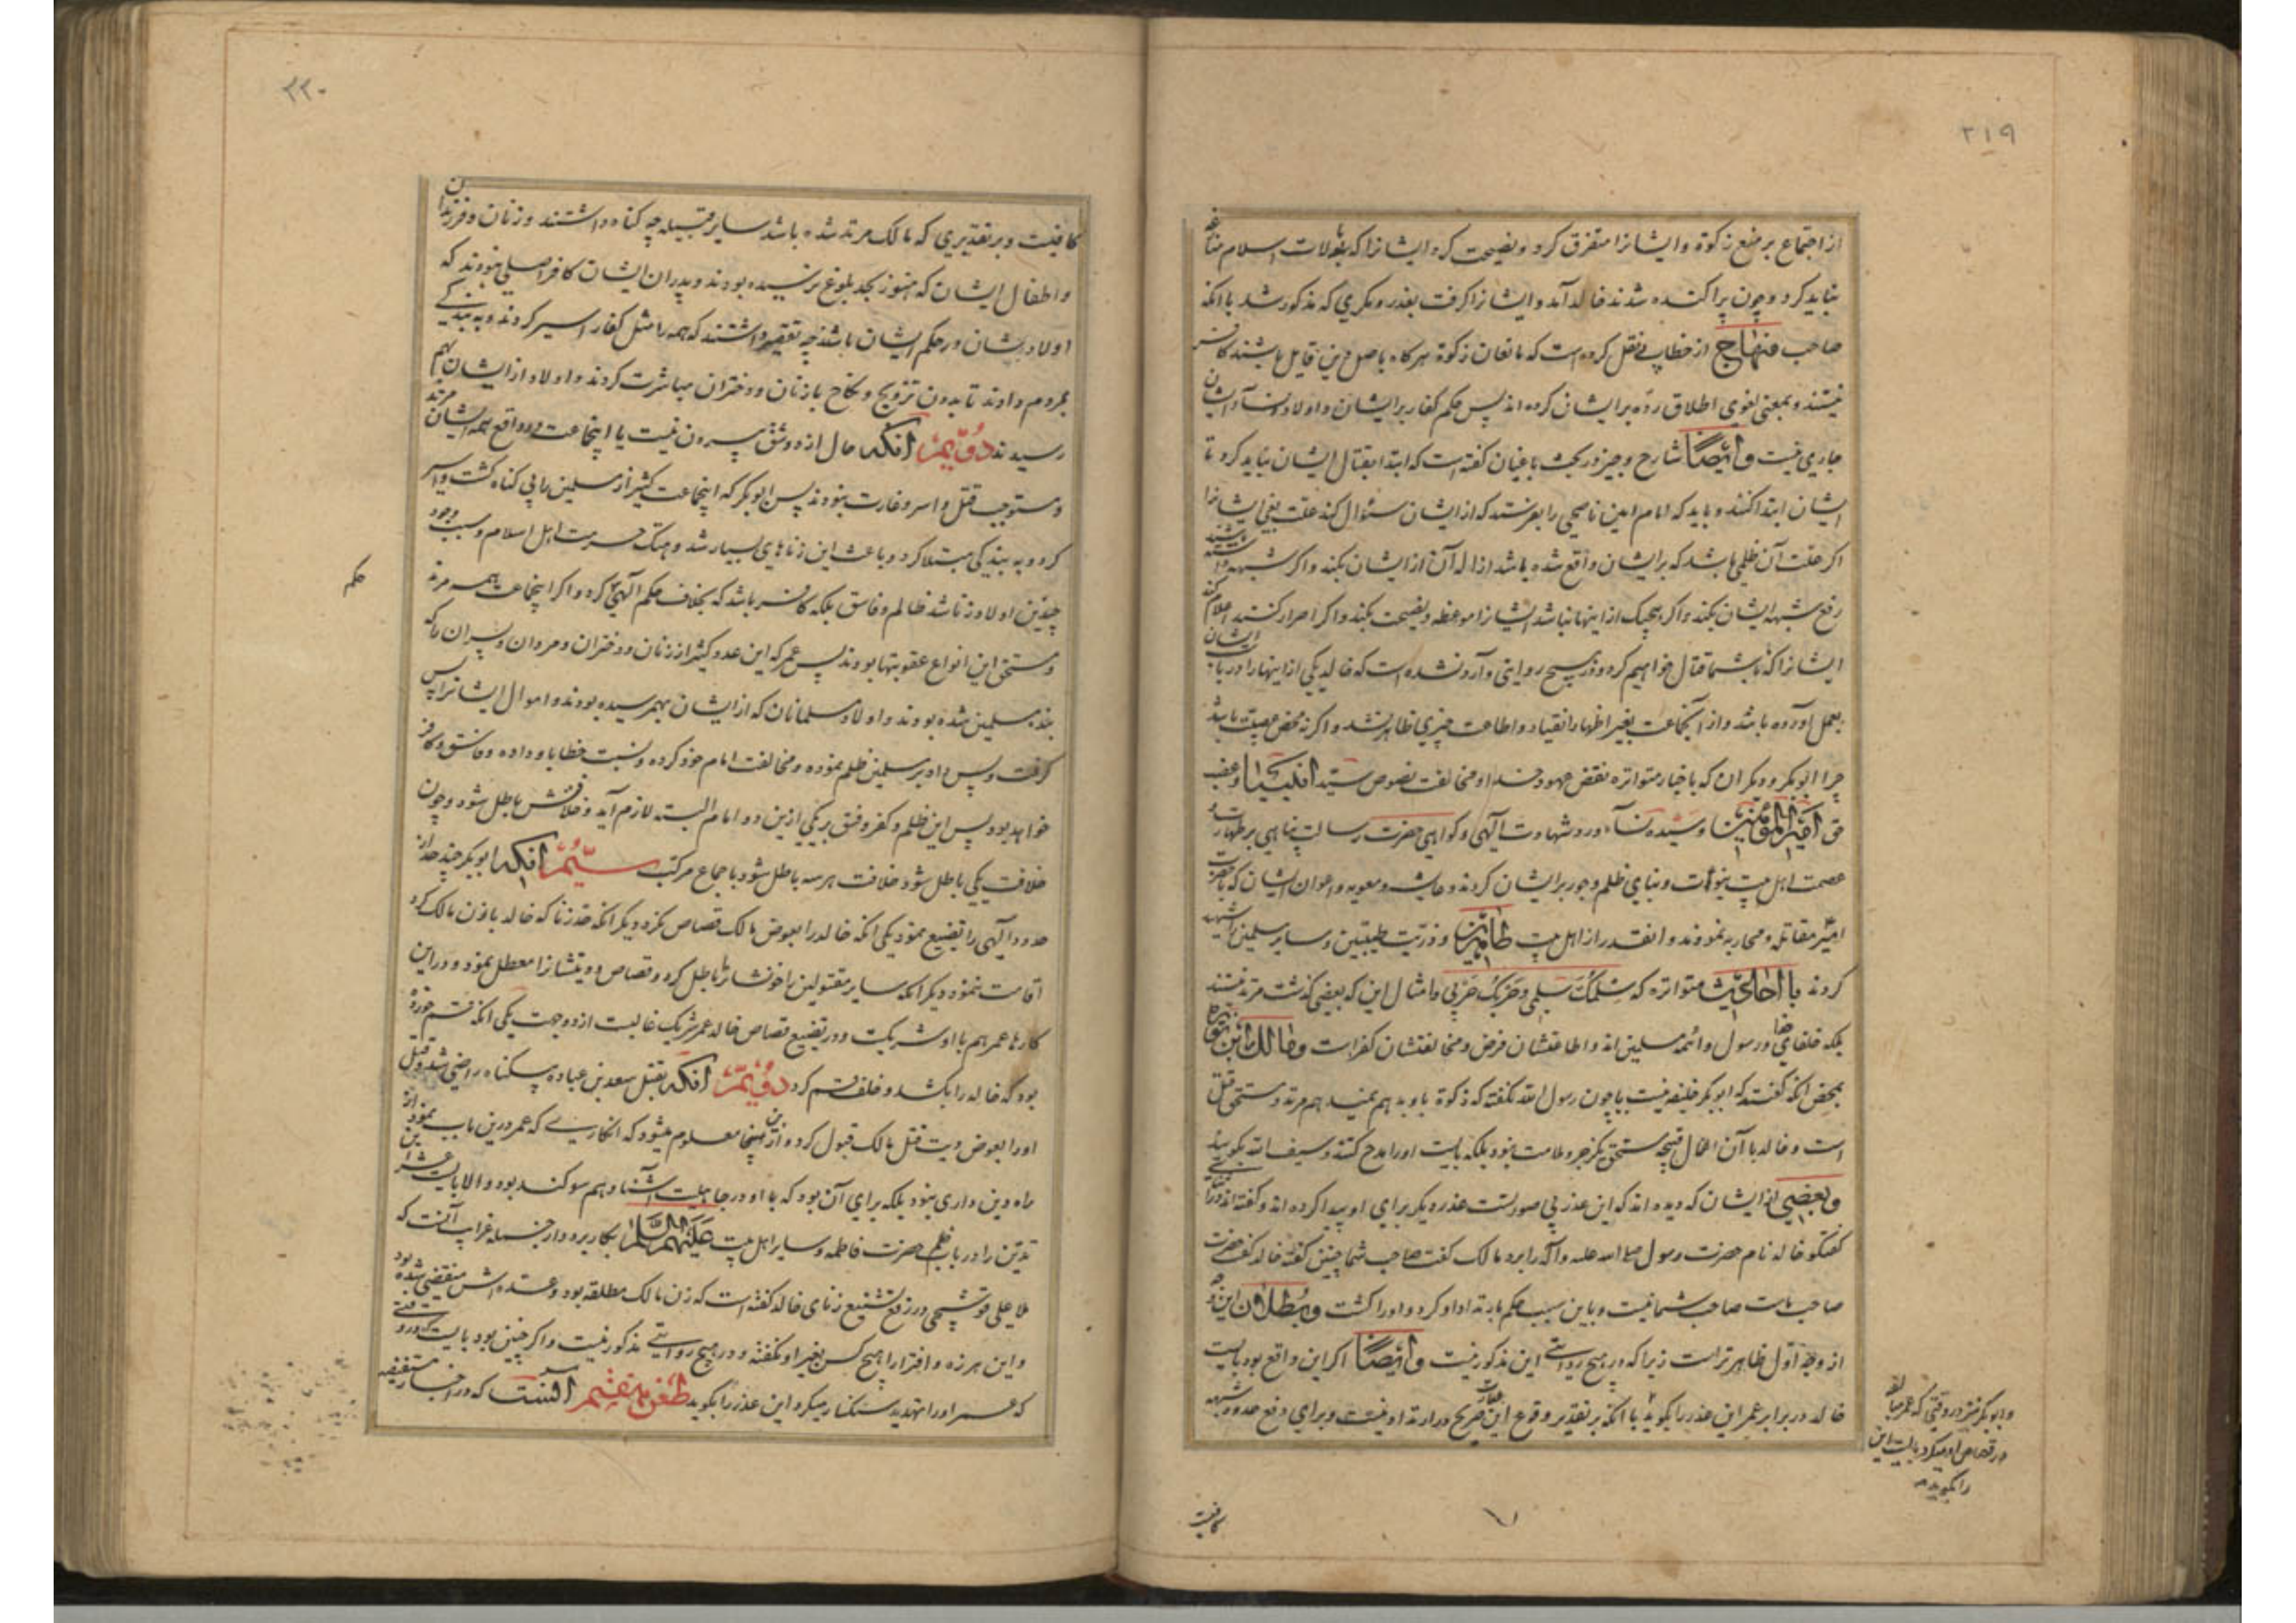 ۲۱۹
از اجتماع بر منع زکوة و ایشانرا متفرق کرد و نصیحت کرد ایشانرا که با ولات اسلام منازعه
نباید کرد و چون پراکنده شدند خالد آمد و ایشانرا گرفت بغدر و مکری که مذکور شد با آنکه
صاحب منهاج از خطابی نقل کرده است که مانعان زکوة هرگاه باصل دین قایل باشند کافر
نیستند و بمعنی لغوی اطلاق رده بر ایشان کرده اند پس حکم کفار بر ایشان و اولاد و نسآء ایشان
جاری نیست و ایضاً شارح وجیز در بحث باغیان گفته است که ابتدا بقتال ایشان نباید کرد تا
ایشان ابتدا کنند و باید که امام امین ناصحی را بفرستد که از ایشان سئوال کند علت بغی ایشانرا
اگر علت آن ظلمی باشد که بر ایشان واقع شده باشد ازاله آن از ایشان بکند و اگر شبهه داشته باشند
رفع شبهه ایشان بکند و اگر هیچیک از اینها نباشد ایشانرا موعظه و نصیحت بکند و اگر اصرار کنند اعلام کند
ایشانرا که با شما قتال خواهیم کرد و در هیچ روایتی وارد نشده است که خالد یکی از اینها را در باب ایشان
بعمل آورده باشد و از آنجماعت بغیر اظهار انقیاد و اطاعت چیزی ظاهر نشد و اگر نه محض عصبیت باشد
چرا ابوبکر و دیگران که باخبار متواتره نقض عهود خدا و مخالفت نصوص سید انبیا و غصب
حق امیرالمؤمنین و سیده نسآء و رد شهادت الهی و گواهی حضرت رسالت پناهی بر طهارت و
عصمت اهل بیت نبوت و بنای ظلم و جور بر ایشان کردند و عایشه و معویه و اعوان ایشان که با حضرت
امیر مقاتله و محاربه نمودند و انقدر از اهل بیت طاهرین و ذریت طیبین و سایر مسلمین را شهید
کردند با احادیث متواتره که سلمک سلمی و حربک حربی و امثال این که بعضی گذشت مرتد نیستند
بلکه خلفای خدا و رسول و ائمه مسلمین اند و اطاعتشان فرض و مخالفتشان کفر است و مالک بن نویره
بمحض آنکه گفتند که ابوبکر خلیفه نیست یا چون رسول الله نگفته که زکوة باو بدهم نمیدهم مرتد و مستحق قتل
است و خالد با آن اعمال قبیحه مستحق یکزجر و ملامت نبود بلکه بایست او را مدح کنند و سیف الله بگویند
و بعضی از ایشان که دیده اند که این عذر بی صورتست عذر دیگر برای او پیدا کرده اند و گفته اند در اثنای
گفتگو خالد نام حضرت رسول صلی الله علیه و آله را برد مالک گفت صاحب شما چنین گفته خالد گفت حضرت
صاحب ماست صاحب شما نیست و باین سبب حکم بارتداد او کرد و او را کشت و بطلان این وجه
از وجه اول ظاهرتر است زیرا که در هیچ روایتی این مذکور نیست و ایضاً اگر این واقع بود بایست
خالد در برابر عمر این عذر را بگوید با آنکه بر تقدیر وقوع این عبارت صریح در ارتداد نیست و برای دفع حدود شبهه
و ابوبکر نیز در وقتی که عمر مبالغه
در قصاص او میکرد بایست این
را بگوید
کافیست
۲۲۰
کافیست و بر تقدیری که مالک مرتد شده باشد سایر قبیله چه گناه داشتند و زنان و فرزندان
و اطفال ایشان که هنوز بحد بلوغ نرسیده بودند و پدران ایشان کافر اصلی نبودند که
اولاد ایشان در حکم ایشان باشند چه تقصیر داشتند که همه را مثل کفار اسیر کردند و به بندگی
بمردم دادند تا بدون تزویج و نکاح با زنان و دختران مباشرت کردند و اولاد از ایشان بهم
رسیدند دویم آنکه حال از دو شق بیرون نیست یا اینجماعت در واقع همه ایشان مرتد
و مستوجب قتل و اسر و غارت نبودند پس ابوبکر که اینجماعت کثیر از مسلمین را بی گناه کشت و اسیر
کرد و به بندگی مبتلا کرد و باعث این زناهای بسیار شد و هتک حرمت اهل اسلام و سبب وجود
چندین اولاد زنا شد ظالم و فاسق بلکه کافر باشد که بخلاف حکم الهی حکم کرد و اگر اینجماعت همه مرتد
و مستحق این انواع عقوبتها بودند پس عمر که این عدد کثیر از زنان و دختران و مردان و پسران را که
بنده مسلمین شده بودند و اولاد مسلمانان که از ایشان بهم رسیده بودند و اموال ایشانرا پس
گرفت و پس داد بر مسلمین ظلم نموده و مخالفت امام خود کرده و نسبت خطا باو داده و فاسق و کافر
خواهد بود پس این ظلم و کفر و فسق بر یکی ازین دو امام البته لازم آید و خلافتش باطل شود و چون
خلافت یکی باطل شود خلافت هر سه باطل شود باجماع مرکب سیّم آنکه ابوبکر چند حد از
حدود الهی را تضییع نمود یکی آنکه خالد را بعوض مالک قصاص نکرد دیگر آنکه حد زنا که خالد با زن مالک کرد
اقامت ننمود دیگر آنکه سایر مقتولین را خونشانرا باطل کرد و قصاص و دیتشانرا معطل نمود و در این
کارها عمر هم با او شریکست و در تضییع قصاص خالد عمر شریک غالبست از دو جهت یکی آنکه قسم خورده
بود که خالد را بکشد و خلف قسم کرد دویّم آنکه بقتل سعد بن عباده بیگناه راضی شد و قتل
او را بعوض دیت قتل مالک قبول کرد و از اینجا معلوم میشود که انکاری که عمر درین باب نمود از
راه دین داری نبود بلکه برای آن بود که با او در جاهلیت آشنا و هم سوگند بود والا بایست عشر این
تدین را در باب ظلم حضرت فاطمه و سایر اهل بیت علیهم السلام بکار برد و از جمله غرایب آنست که
ملا علی قوشچی در رفع تشنیع زنای خالد گفته است که زن مالک مطلقه بود و عده اش منقضی شده بود
و این هرزه و افترا را هیچ کس بغیر او نگفته و در هیچ روایتی مذکور نیست و اگر چنین بود بایست در وقتی
که عمر او را تهدید سنگسار میکرد این عذر را بگوید طعن هفتم آنست که در اخبار مستفیضه
حکم